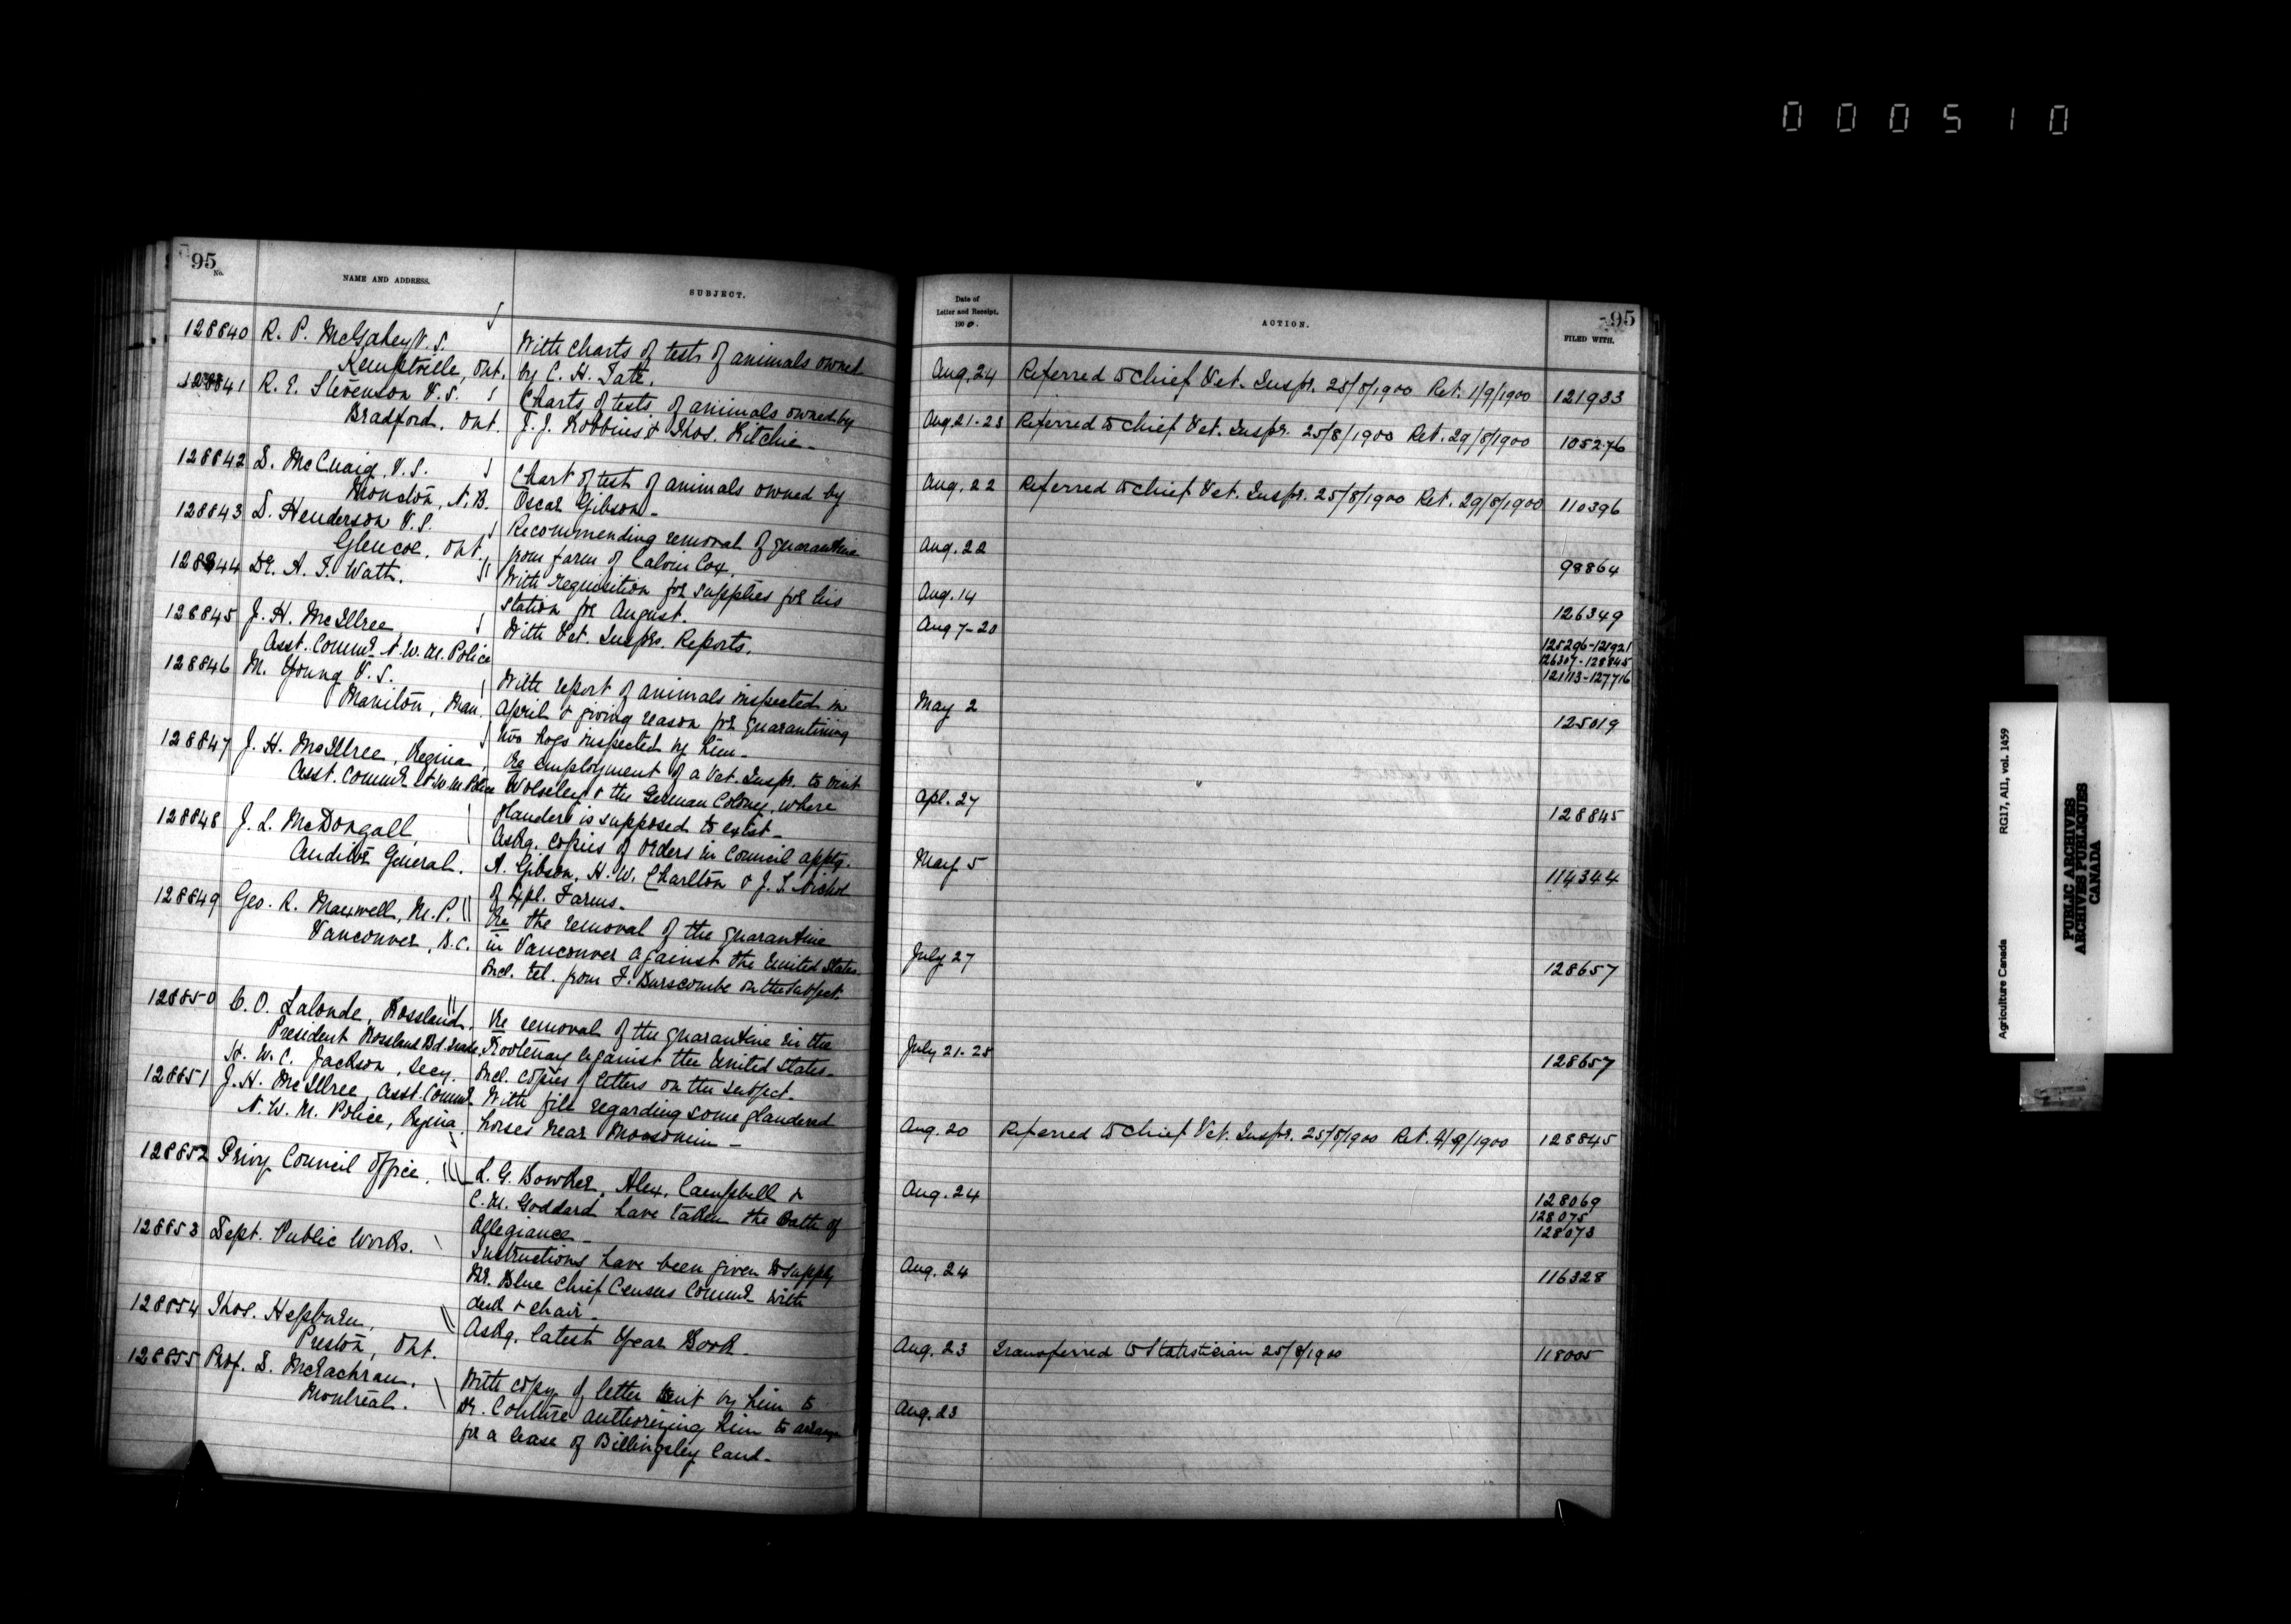 000510
95
No.
NAME AND ADDRESS.
SUBJECT.
128840 R. P. McGahey V.S.
Kemptville, Ont.
With charts of tests of animals owned
by C. H. Tate.
128841 R. E. Stevenson V.S.
Bradford, Ont.
Charts of tests of animals owned by
J. J. Robbins & Thos. Kitchie.
128842 D. McCuaig, V.S.
Moncton, N.B.
Chart of test of animals owned by
Oscar Gibson.
128843 D. Henderson V.S.
Glencoe, Ont.
Recommending removal of quarantine
from farm of Calvin Cox.
128844 Dr. A. T. Watt.
With requisition for supplies for his
station for August.
128845 J. H. McIllree
Asst. Commr. N.W.M. Police
With Vet. Insprs. Reports.
128846 M. Young V.S.
Manitou, Man.
With report of animals inspected in
April & giving reason for quarantining
two hogs inspected by him.
128847 J. H. McIllree, Regina,
Asst. Commr. N.W.M. Police
Re employment of a Vet. Inspr. to visit
Wolseley & the German Colony, where
glanders is supposed to exist.
128848 J. L. McDougall,
Auditor General.
Askg. copies of Orders in Council apptg.
A. Gibson, H. W. Charlton & J. S. Nichol
of Expl. Farms.
128849 Geo. R. Maxwell, M.P.
Vancouver, B.C.
Re the removal of the quarantine
in Vancouver against the United States.
Incl. tel. from F. Burscombe on the subject.
128850 C. O. Lalonde, Rossland,
President Rossland Bd. Trade,
H. W. C. Jackson, Secy.
Re removal of the quarantine in the
Kootenay against the United States.
Incl. copies of letters on the subject.
128851 J. H. McIllree, Asst. Commr.
N.W.M. Police, Regina.
With file regarding some glandered
horses near Moosomin -
128852 Privy Council Office.
L. G. Bowker, Alex. Campbell &
C. M. Goddard have taken the Oath of
Allegiance -
128853 Dept. Public Works.
Instructions have been given to supply
Mr. Blue Chief Census Commr. with
desk & chair -
128854 Thos. Hepburn,
Preston, Ont.
Askg. latest Year Book -
128855 Prof. D. McEachran,
Montreal.
With copy of letter sent by him to
Dr. Couture authorizing him to arrange
for a lease of Billingsley land -
95
Date of
Letter and Receipt.
1900.
ACTION.
FILED WITH.
Aug. 24 Referred to Chief Vet. Inspr. 25/8/1900 Ret. 1/9/1900 121933
Aug. 21-23 Referred to Chief Vet. Inspr. 25/8/1900 Ret. 29/8/1900 105276
Aug. 22 Referred to Chief Vet. Inspr. 25/8/1900 Ret. 29/8/1900 110396
Aug. 22 98864
Aug. 14 126349
Aug 7-20 125296-121921
126307-128845
121113-127716
May 2 125019
Apl. 27 128845
May 5 114344
July 27 128657
July 21-25 128657
Aug. 20 Referred to Chief Vet. Inspr. 25/8/1900 Ret. 4/9/1900 128845
Aug. 24 128069
128075
128073
Aug. 24 116328
Aug. 23 Transferred to Statistician 25/8/1900 118005
Aug. 23
Agriculture Canada RG17, AII, vol. 1459
PUBLIC ARCHIVES
ARCHIVES PUBLIQUES
CANADA